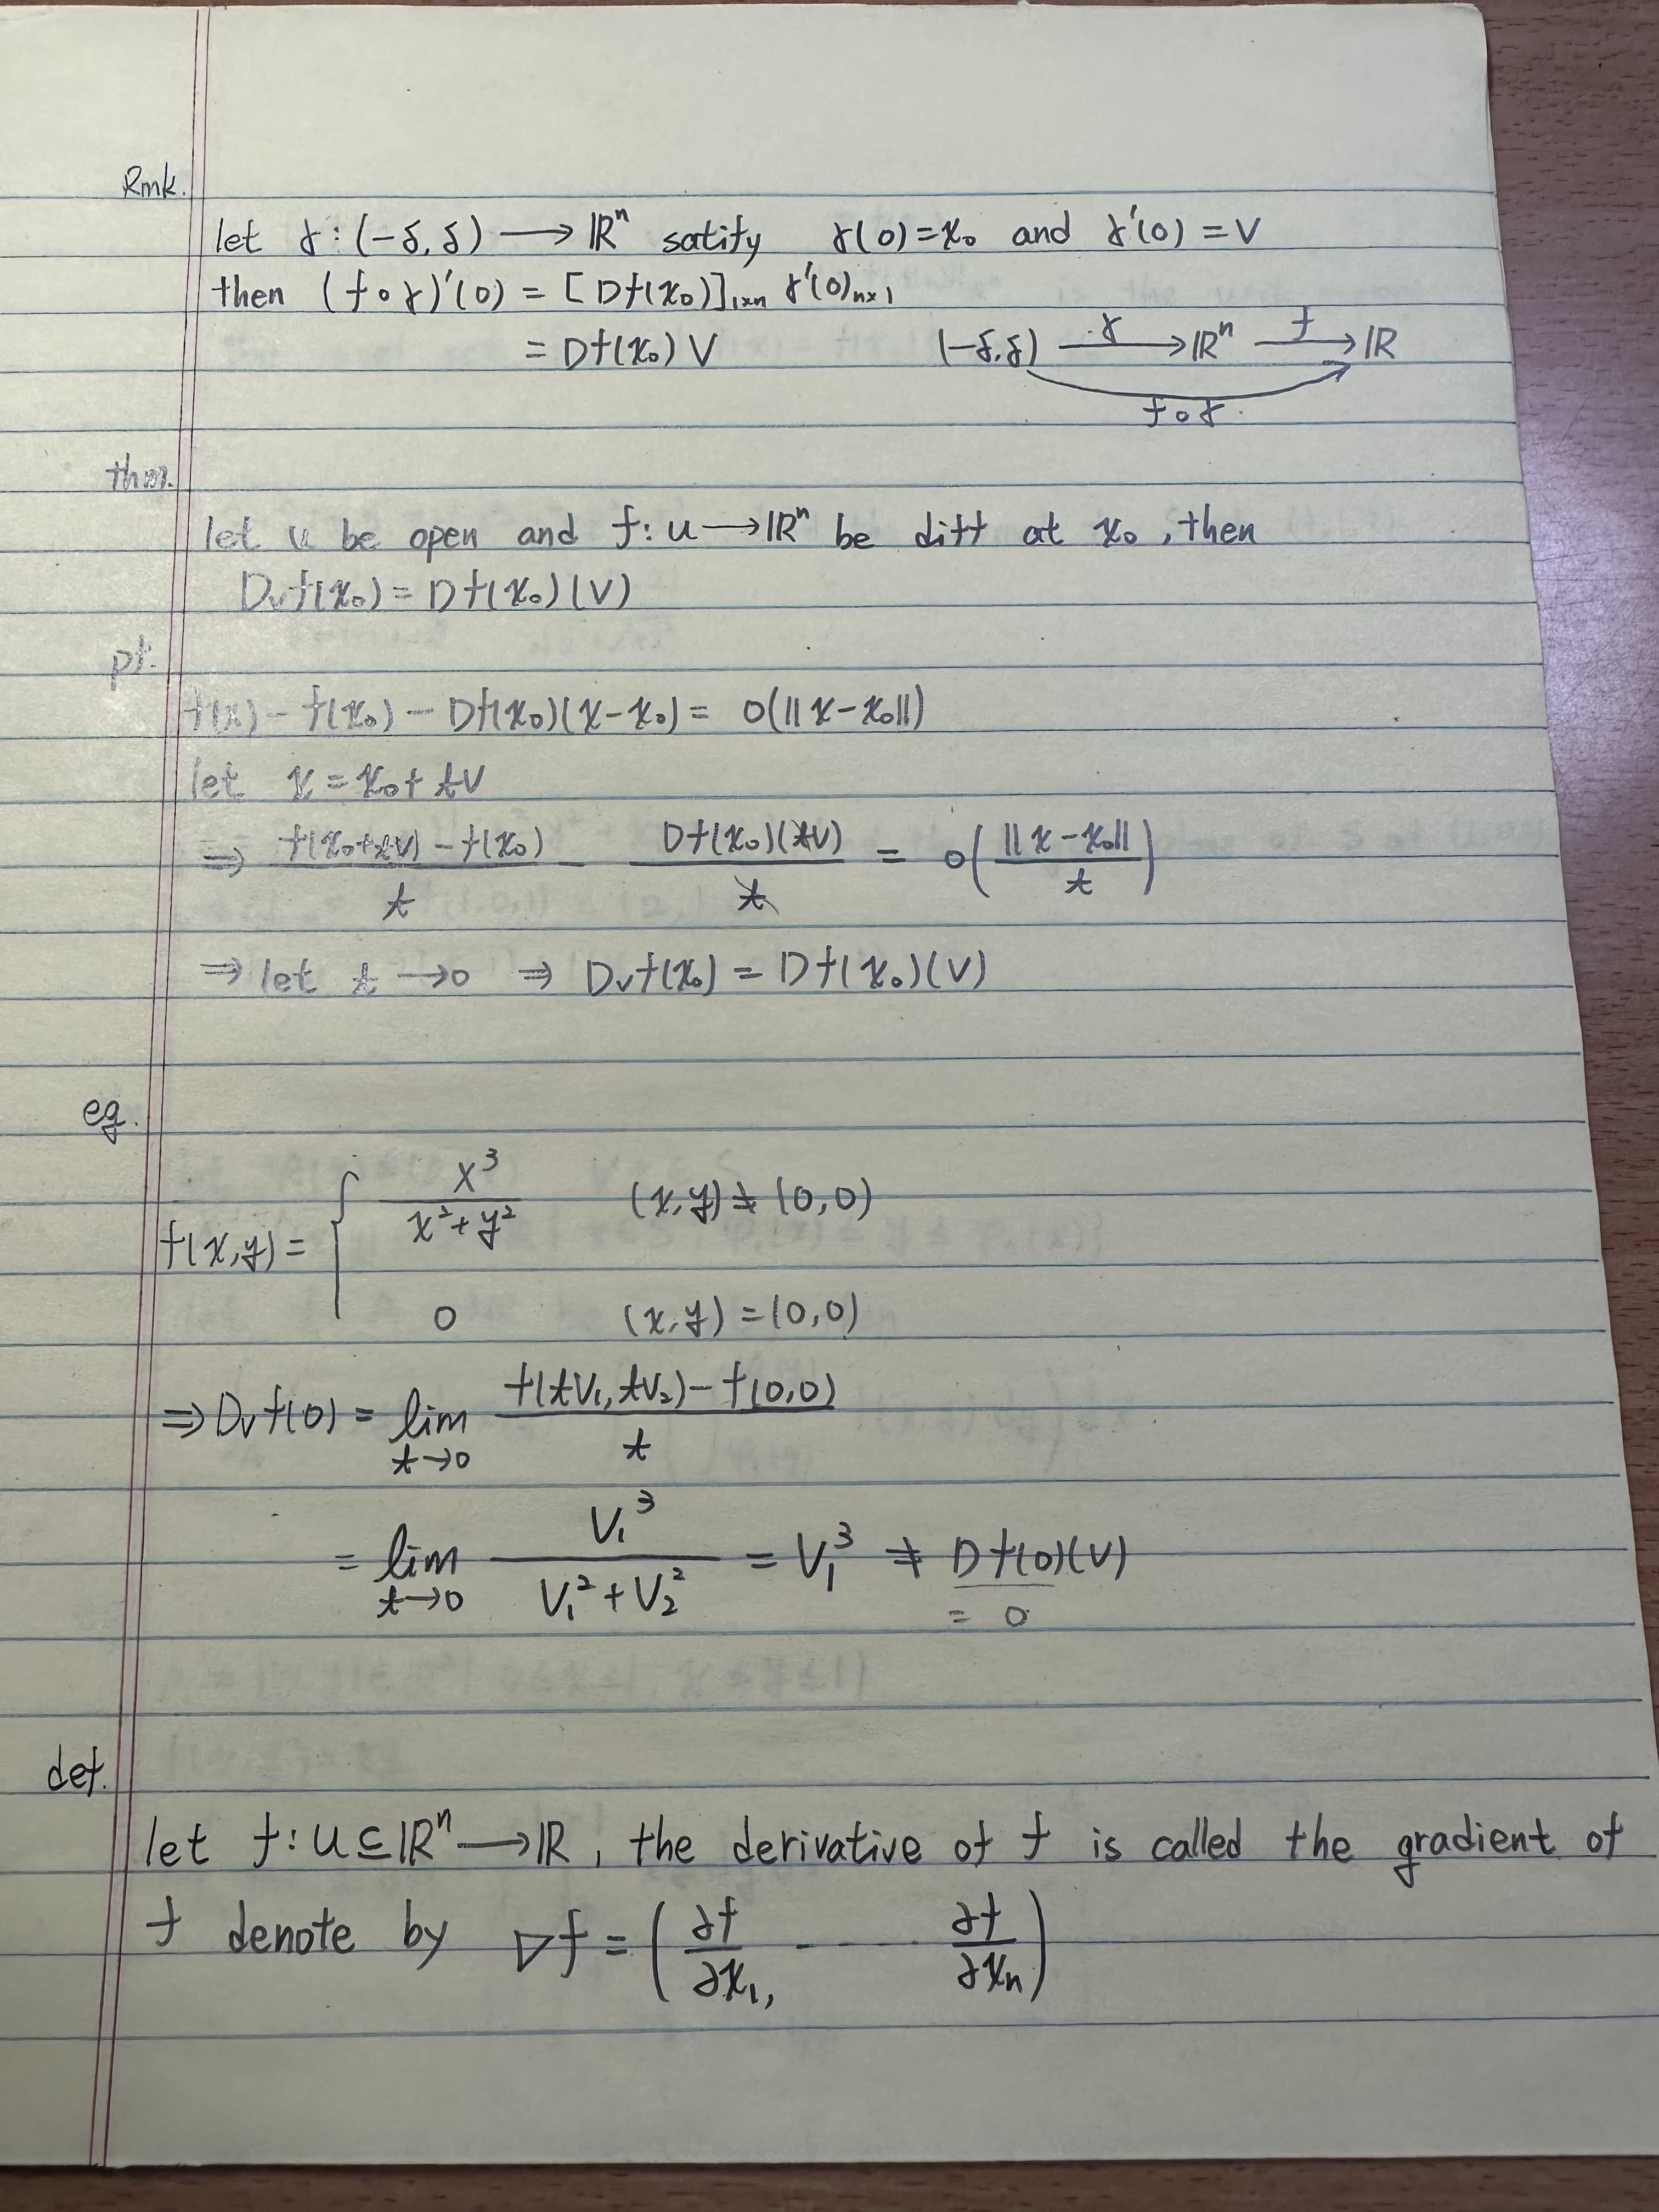 Rmk.
let γ : (-δ, δ) ⟶ ℝⁿ satify γ(0) = x₀ and γ'(0) = V
then (f∘γ)'(0) = [Df(x₀)]₁ₓₙ γ'(0)ₙₓ₁
= Df(x₀) V (-δ, δ) —γ→ ℝⁿ —f→ ℝ
f∘γ
thm.
let u be open and f : u ⟶ ℝⁿ be diff at x₀, then
D_V f(x₀) = Df(x₀)(V)
pf.
f(x) - f(x₀) - Df(x₀)(x - x₀) = o(‖x - x₀‖)
let x = x₀ + tV
⇒ (f(x₀+tV) - f(x₀))/t - Df(x₀)(tV)/t = o(‖x - x₀‖/t)
⇒ let t → 0 ⇒ D_V f(x₀) = Df(x₀)(V)
eg.
f(x,y) = { x³/(x²+y²) (x,y) ≠ (0,0)
0 (x,y) = (0,0)
⇒ D_V f(0) = lim_{t→0} (f(tV₁, tV₂) - f(0,0))/t
= lim_{t→0} V₁³/(V₁²+V₂²) = V₁³ ≠ Df(0)(V)
= 0
def.
let f : U ⊆ ℝⁿ ⟶ ℝ, the derivative of f is called the gradient of
f denote by ∇f = (∂f/∂x₁, ---- ∂f/∂xₙ)